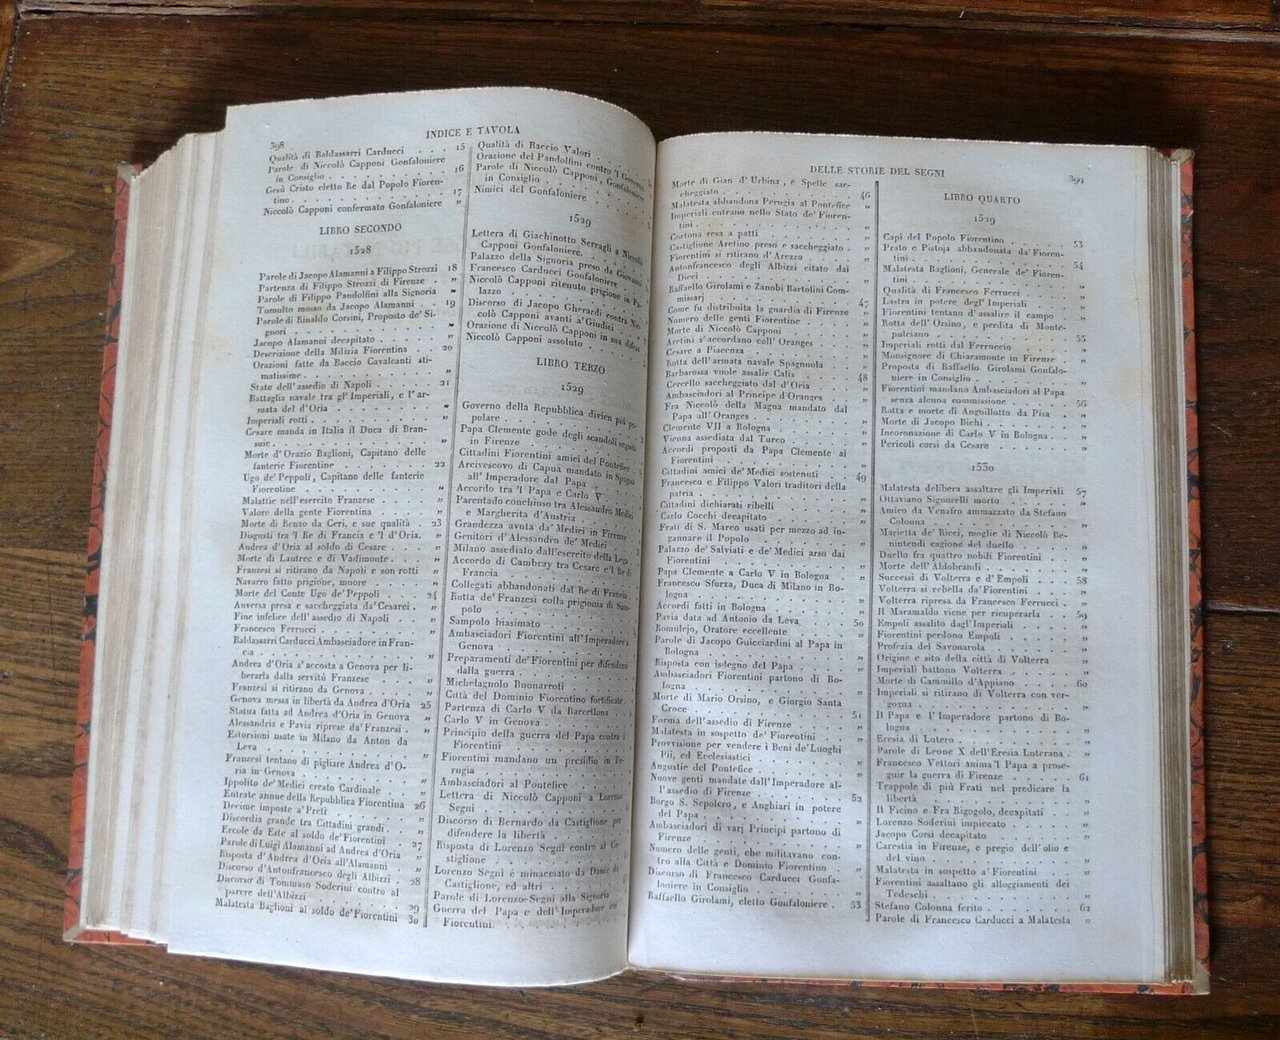 398
INDICE E TAVOLA
Qualità di Baldassarri Carducci . . . . 15
Parole di Niccolò Capponi Gonfaloniere
in Consiglio . . . . 16
Gesù Cristo eletto Re dal Popolo Fioren-
tino . . . . 17
Niccolò Capponi confermato Gonfaloniere „
LIBRO SECONDO
1528
Parole di Jacopo Alamanni a Filippo Strozzi 18
Partenza di Filippo Strozzi di Firenze . „
Parole di Filippo Pandolfini alla Signoria „
Tumulto mosso da Jacopo Alamanni . . 19
Parole di Rinaldo Corsini, Proposto de' Si-
gnori . . . . „
Jacopo Alamanni decapitato . . . . „
Descrizione della Milizia Fiorentina . . 20
Orazioni fatte da Baccio Cavalcanti sti-
matissime . . . . „
Stato dell'assedio di Napoli . . . . 21
Battaglia navale tra gl'Imperiali, e l'ar-
mata del d'Oria . . . . „
Imperiali rotti . . . . „
Cesare manda in Italia il Duca di Bran-
suic . . . . „
Morte d'Orazio Baglioni, Capitano delle
fanterie Fiorentine . . . . 22
Ugo de'Peppoli, Capitano delle fanterie
Fiorentine . . . . „
Malattie nell'esercito Franzese . . . . „
Valore della gente Fiorentina . . . . „
Morte di Renzo da Ceri, e sue qualità . 23
Disgusti tra 'l Re di Francia e 'l d'Oria. „
Andrea d'Oria al soldo di Cesare . . . „
Morte di Lautrec e di Vadimonte . . . „
Franzesi si ritirano da Napoli e son rotti „
Navarro fatto prigione, muore . . . . „
Morte del Conte Ugo de'Peppoli . . . 24
Anversa presa e saccheggiata da'Cesarei . „
Fine infelice dell'assedio di Napoli . . „
Francesco Ferrucci . . . . „
Baldassarri Carducci Ambasciadore in Fran-
cia . . . . „
Andrea d'Oria s'accosta a Genova per li-
berarla dalla servitù Franzese . . . . „
Franzesi si ritirano da Genova . . . . „
Genova messa in libertà da Andrea d'Oria 25
Statua fatta ad Andrea d'Oria in Genova „
Alessandria e Pavia riprese da'Franzesi . „
Estorsioni usate in Milano da Anton da
Leva . . . . „
Franzesi tentano di pigliare Andrea d'O-
ria in Genova . . . . „
Ippolito de'Medici creato Cardinale . . „
Entrate annue della Repubblica Fiorentina 26
Decime imposte a'Preti . . . . „
Discordia grande tra Cittadini grandi . . „
Ercole da Este al soldo de'Fiorentini . . 27
Parole di Luigi Alamanni ad Andrea d'Oria „
Risposta d'Andrea d'Oria all'Alamanni . „
Discorso d'Antonfrancesco degli Albizzi . 28
Discorso di Tommaso Soderini contro al
parere dell'Albizzi . . . . 29
Malatesta Baglioni al soldo de'Fiorentini 30
Qualità di Baccio Valori . . . .
Orazione del Pandolfini contro 'l Governo
Parole di Niccolò Capponi, Gonfaloniere
in Consiglio . . . .
Nimici del Gonfaloniere . . . .
1529
Lettera di Giachinotto Serragli a Niccolò
Capponi Gonfaloniere. . . . .
Palazzo della Signoria preso da Giovani
Francesco Carducci Gonfaloniere. . . .
Niccolò Capponi ritenuto prigione in Pa-
lazzo . . . .
Discorso di Jacopo Gherardi contro Nic-
colò Capponi avanti a'Giudici . . . .
Orazione di Niccolò Capponi in sua difesa
Niccolò Capponi assoluto . . . .
LIBRO TERZO
1529
Governo della Repubblica divien più po-
polare . . . .
Papa Clemente gode degli scandoli seguiti
in Firenze . . . .
Cittadini Fiorentini amici del Pontefice
Arcivescovo di Capua mandato in Spagna
all'Imperadore dal Papa . . . .
Accordo tra 'l Papa e Carlo V . . . .
Parentado conchiuso tra Alessandro Medici
e Margherita d'Austria . . . .
Grandezza avuta da'Medici in Firenze
Genitori d'Alessandro de' Medici . . . .
Milano assediato dall'esercito della Lega
Accordo di Cambray tra Cesare e'l Re di
Francia . . . .
Collegati abbandonati dal Re di Francia
Rotta de'Franzesi colla prigionia di San-
polo . . . .
Sampolo biasimato . . . .
Ambasciadori Fiorentini all'Imperadore a
Genova . . . .
Preparamenti de'Fiorentini per difendersi
dalla guerra . . . .
Michelagnolo Buonarroti . . . .
Città del Dominio Fiorentino fortificate .
Partenza di Carlo V da Barcellona . . .
Carlo V in Genova . . . .
Principio della guerra del Papa contro i
Fiorentini . . . .
Fiorentini mandano un presidio in Pe-
rugia . . . .
Ambasciadori al Pontefice . . . .
Lettera di Niccolò Capponi a Lorenzo
Segni . . . .
Discorso di Bernardo da Castiglione per
difendere la libertà . . . .
Risposta di Lorenzo Segni contro al Ca-
stiglione . . . .
Lorenzo Segni è minacciato da Dante da
Castiglione, ed altri . . . .
Parole di Lorenzo Segni alla Signoria
Guerra del Papa e dell'Imperadore coi
Fiorentini . . . .
DELLE STORIE DEL SEGNI
399
Morte di Gian d'Urbina, e Spelle sac-
cheggiato . . . . 46
Malatesta abbandona Perugia al Pontefice „
Imperiali entrano nello Stato de'Fioren-
tini . . . . „
Cortona resa a patti . . . . „
Castiglione Aretino preso e saccheggiato . „
Fiorentini si ritirano d'Arezzo . . . . „
Antonfrancesco degli Albizzi citato dai
Dieci . . . . „
Raffaello Girolami e Zanobi Bartolini Com-
missarj . . . . 47
Come fu distribuita la guardia di Firenze „
Numero delle genti Fiorentine . . . . „
Morte di Niccolò Capponi . . . . „
Aretini s'accordano coll' Oranges . . . „
Cesare a Piacenza . . . . „
Rotta dell'armata navale Spagnuola . . „
Barbarossa vuole assalir Calis . . . . 48
Cercello saccheggiato dal d'Oria . . . „
Ambasciadori al Principe d'Oranges . . „
Fra Niccolò della Magna mandato dal
Papa all'Oranges . . . . „
Clemente VII a Bologna . . . . „
Vienna assediata dal Turco . . . . „
Accordi proposti da Papa Clemente ai
Fiorentini . . . . „
Cittadini amici de'Medici sostenuti . . „
Francesco e Filippo Valori traditori della 49
patria . . . . „
Cittadini dichiarati ribelli . . . . „
Carlo Cocchi decapitato . . . . „
Frati di S. Marco usati per mezzo ad in-
gannare il Popolo . . . . „
Palazzo de' Salviati e de'Medici arso dai
Fiorentini . . . . „
Papa Clemente a Carlo V in Bologna . „
Francesco Sforza, Duca di Milano in Bo-
logna . . . . „
Accordi fatti in Bologna . . . . „
Pavia data ad Antonio da Leva . . . 50
Romolejo, Oratore eccellente . . . . „
Parole di Jacopo Guicciardini al Papa in
Bologna . . . . „
Risposta con isdegno del Papa . . . . „
Ambasciadori Fiorentini partono di Bo-
logna . . . . „
Morte di Mario Orsino, e Giorgio Santa
Croce . . . . „
Forma dell'assedio di Firenze . . . . 51
Malatesta in sospetto de'Fiorentini . . „
Provvisione per vendere i Beni de'Luoghi
Pii, ed Ecclesiastici . . . . „
Angustie del Pontefice . . . . „
Nuove genti mandate dall'Imperadore al-
l'assedio di Firenze . . . . 52
Borgo S. Sepolcro, e Anghiari in potere
del Papa . . . . „
Ambasciadori di varj Principi partono di
Firenze . . . . „
Numero delle genti, che militavano con-
tro alla Città e Dominio Fiorentino . „
Discorso di Francesco Carducci Gonfa-
loniere in Consiglio . . . . „
Raffaello Girolami, eletto Gonfaloniere . 53
LIBRO QUARTO
1529
Capi del Popolo Fiorentino . . . . 53
Prato e Pistoja abbandonata da'Fioren-
tini . . . . 54
Malatesta Baglioni, Generale de' Fioren-
tini . . . . „
Qualità di Francesco Ferrucci . . . . „
Lastra in potere degl'Imperiali . . . „
Fiorentini tentano d'assalire il campo . „
Rotta dell'Orsino, e perdita di Monte-
pulciano . . . . 55
Imperiali rotti dal Ferruccio . . . . „
Monsignore di Chiaramonte in Firenze . „
Proposta di Raffaello Girolami Gonfalo-
niere in Consiglio . . . . „
Fiorentini mandano Ambasciadori al Papa
senza alcuna commissione . . . . 56
Rotta e morte di Anguillotto da Pisa . „
Morte di Jacopo Bichi . . . . „
Incoronazione di Carlo V in Bologna . . „
Pericoli corsi da Cesare . . . . „
1530
Malatesta delibera assaltare gli Imperiali 57
Ottaviano Signorelli morto . . . . „
Amico da Venafro ammazzato da Stefano
Colonna . . . . „
Marietta de' Ricci, moglie di Niccolò Be-
nintendi cagione del duello . . . . „
Duello fra quattro nobili Fiorentini . . „
Morte dell'Aldobrandi . . . . „
Successi di Volterra e d'Empoli . . . 58
Volterra si rebella da'Fiorentini . . . „
Volterra ripresa da Francesco Ferrucci . „
Il Maramaldo viene per ricuperarla . . 59
Empoli assalito dagl'Imperiali . . . . „
Fiorentini perdono Empoli . . . . „
Profezia del Savonarola . . . . „
Origine e sito della città di Volterra . „
Imperiali battono Volterra . . . . „
Morte di Cammillo d'Appiano . . . . 60
Imperiali si ritirano di Volterra con ver-
gogna . . . . „
Il Papa e l'Imperadore partono di Bo-
logna . . . . „
Eresia di Lutero . . . . „
Parole di Leone X dell'Eresia Luterana . „
Francesco Vettori anima'l Papa a prose-
guir la guerra di Firenze . . . . 61
Trappole di più Frati nel predicare la
libertà . . . . „
Il Ficino e Fra Rigogolo, decapitati . . „
Lorenzo Soderini impiccato . . . . „
Jacopo Corsi decapitato . . . . „
Carestia in Firenze, e pregio dell'olio e
del vino . . . . „
Malatesta in sospetto a'Fiorentini . . . „
Fiorentini assaltano gli alloggiamenti dei
Tedeschi . . . . „
Stefano Colonna ferito . . . . 62
Parole di Francesco Carducci a Malatesta „